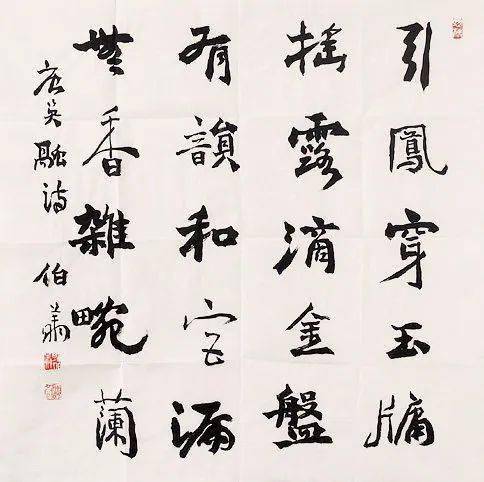 引鳳穿玉牖
摇露滴金盤
有韻和宫漏
無香雜畹蘭
唐吴融诗 伯萧